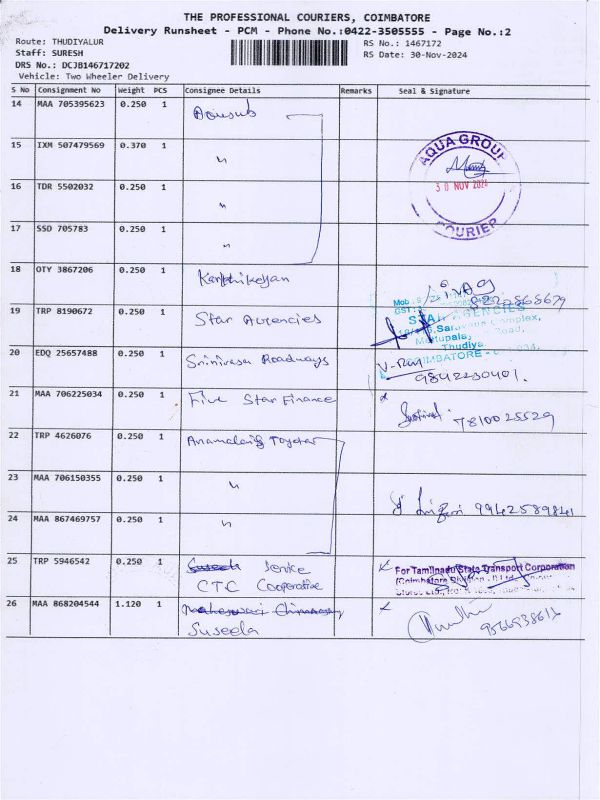 THE PROFESSIONAL COURIERS, COIMBATORE
Delivery Runsheet - PCM - Phone No.:0422-3505555 - Page No.:2
Route: THUDIYALUR
Staff: SURESH
DRS No.: DCJB146717202
Vehicle: Two Wheeler Delivery
RS No.: 1467172
RS Date: 30-Nov-2024
S No Consignment No Weight PCS Consignee Details Remarks Seal & Signature
14 MAA 705395623 0.250 1
15 IXM 507479569 0.370 1 "
AQUA GROUP
30 NOV 2024
COURIER
16 TDR 5502032 0.250 1 "
17 SSD 705783 0.250 1 "
18 OTY 3867206 0.250 1 Karthikeyan
19 TRP 8190672 0.250 1 Star Agencies
STAR AGENCIES
20 EDQ 25657488 0.250 1 Srinivasa Roadways
9842230401.
21 MAA 706225034 0.250 1 Five Star Finance
7810025529
22 TRP 4626076 0.250 1
23 MAA 706150355 0.250 1 "
9942589841
24 MAA 867469757 0.250 1 "
25 TRP 5946542 0.250 1 Service
CTC Cooperative
For Tamilnadu State Transport Corporation
26 MAA 868204544 1.120 1
Suseela